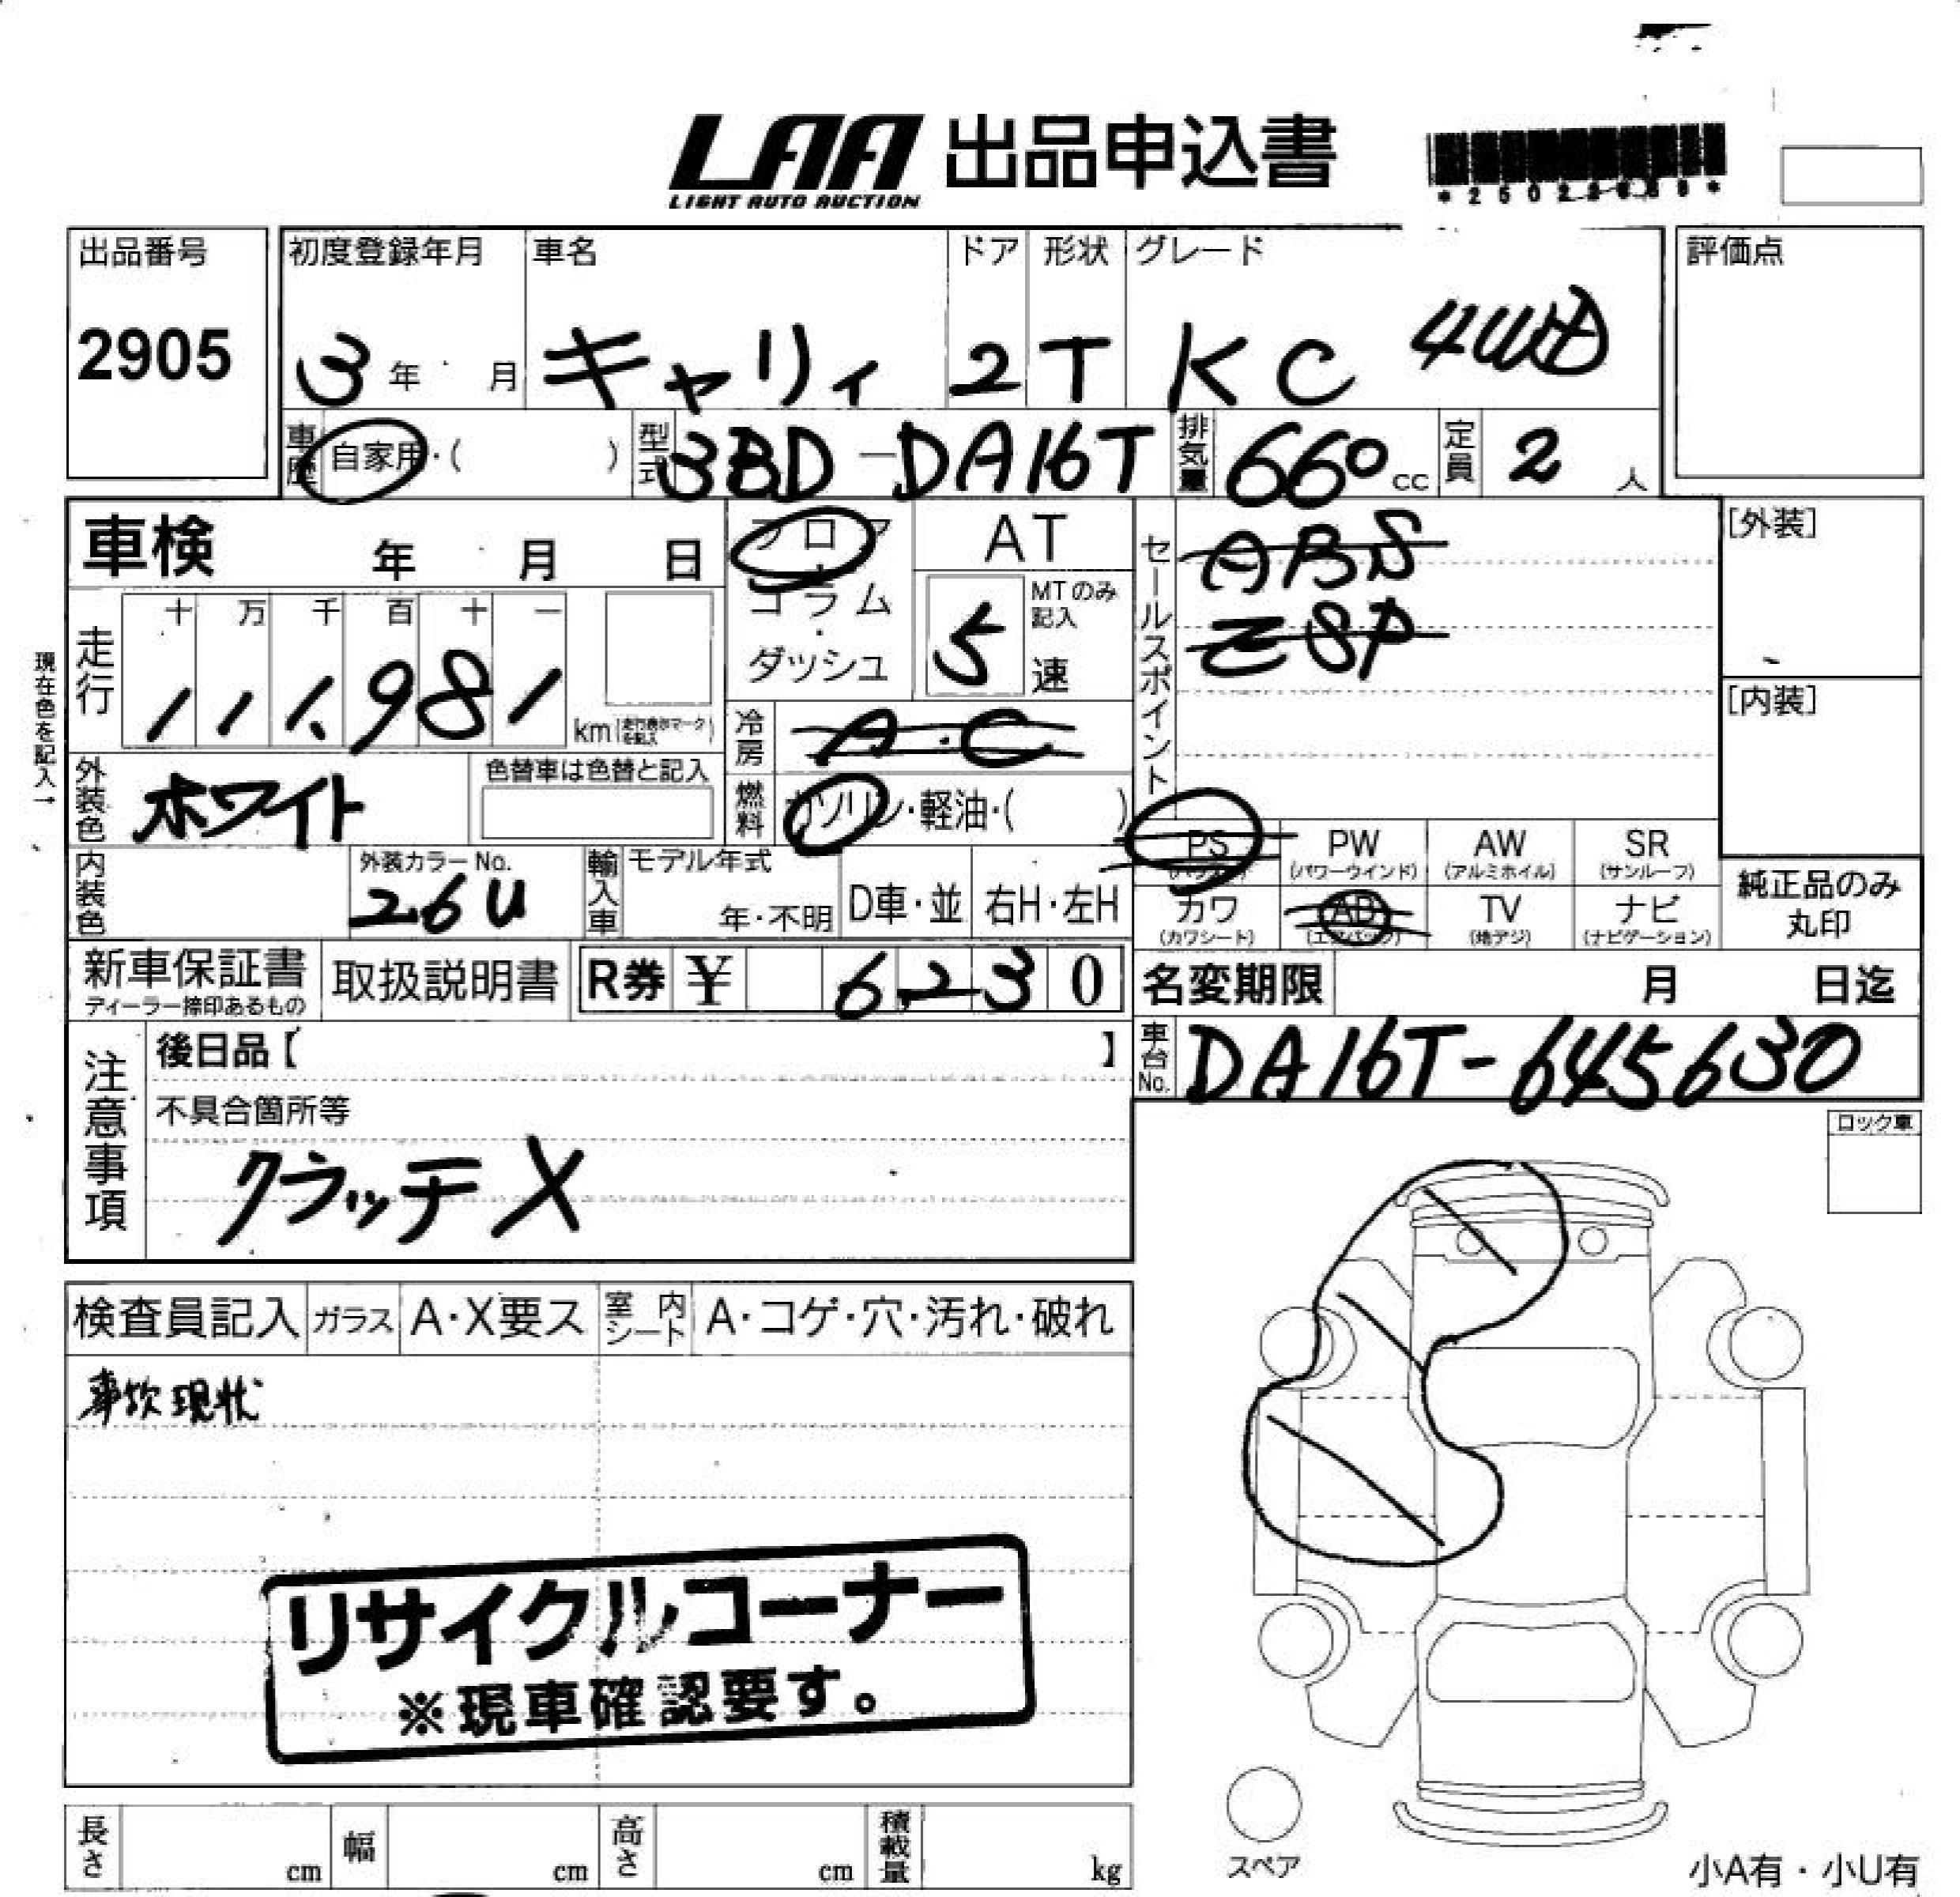 LAA 出品申込書
LIGHT AUTO AUCTION
出品番号
2905
初度登録年月
3年 月
車名
キャリィ
ドア
2
形状
T
グレード
KC 4WD
評価点
車歴
自家用・( )
型式
3BD-DA16T
排気量
660cc
定員
2人
車検 年 月 日
フロア
コラム
・
ダッシュ
AT
MTのみ記入
5速
走行
十 万 千 百 十 一
111,981
km (走行表示マークを記入)
現在色を記入→
冷房
A・C
外装色
ホワイト
色替車は色替と記入
燃料
ガソリン・軽油・( )
セールスポイント
ABS
ESP
[外装]
[内装]
PS
PW (パワーウインド)
AW (アルミホイル)
SR (サンルーフ)
カワ (カワシート)
AB (エアバック)
TV (地デジ)
ナビ (ナビゲーション)
純正品のみ
丸印
内装色
外装カラーNo.
26U
輸入車
モデル年式
年・不明
D車・並
右H・左H
新車保証書
ディーラー捺印あるもの
取扱説明書
R券 ¥ 6,230
名変期限 月 日迄
車台No.
DA16T-645630
注意事項
後日品【 】
不具合箇所等
クラッチ X
ロック車
検査員記入
ガラス
A・X要ス
室内シート
A・コゲ・穴・汚れ・破れ
事故現状
リサイクルコーナー
※現車確認要す。
長さ cm
幅 cm
高さ cm
積載量 kg
スペア
小A有・小U有